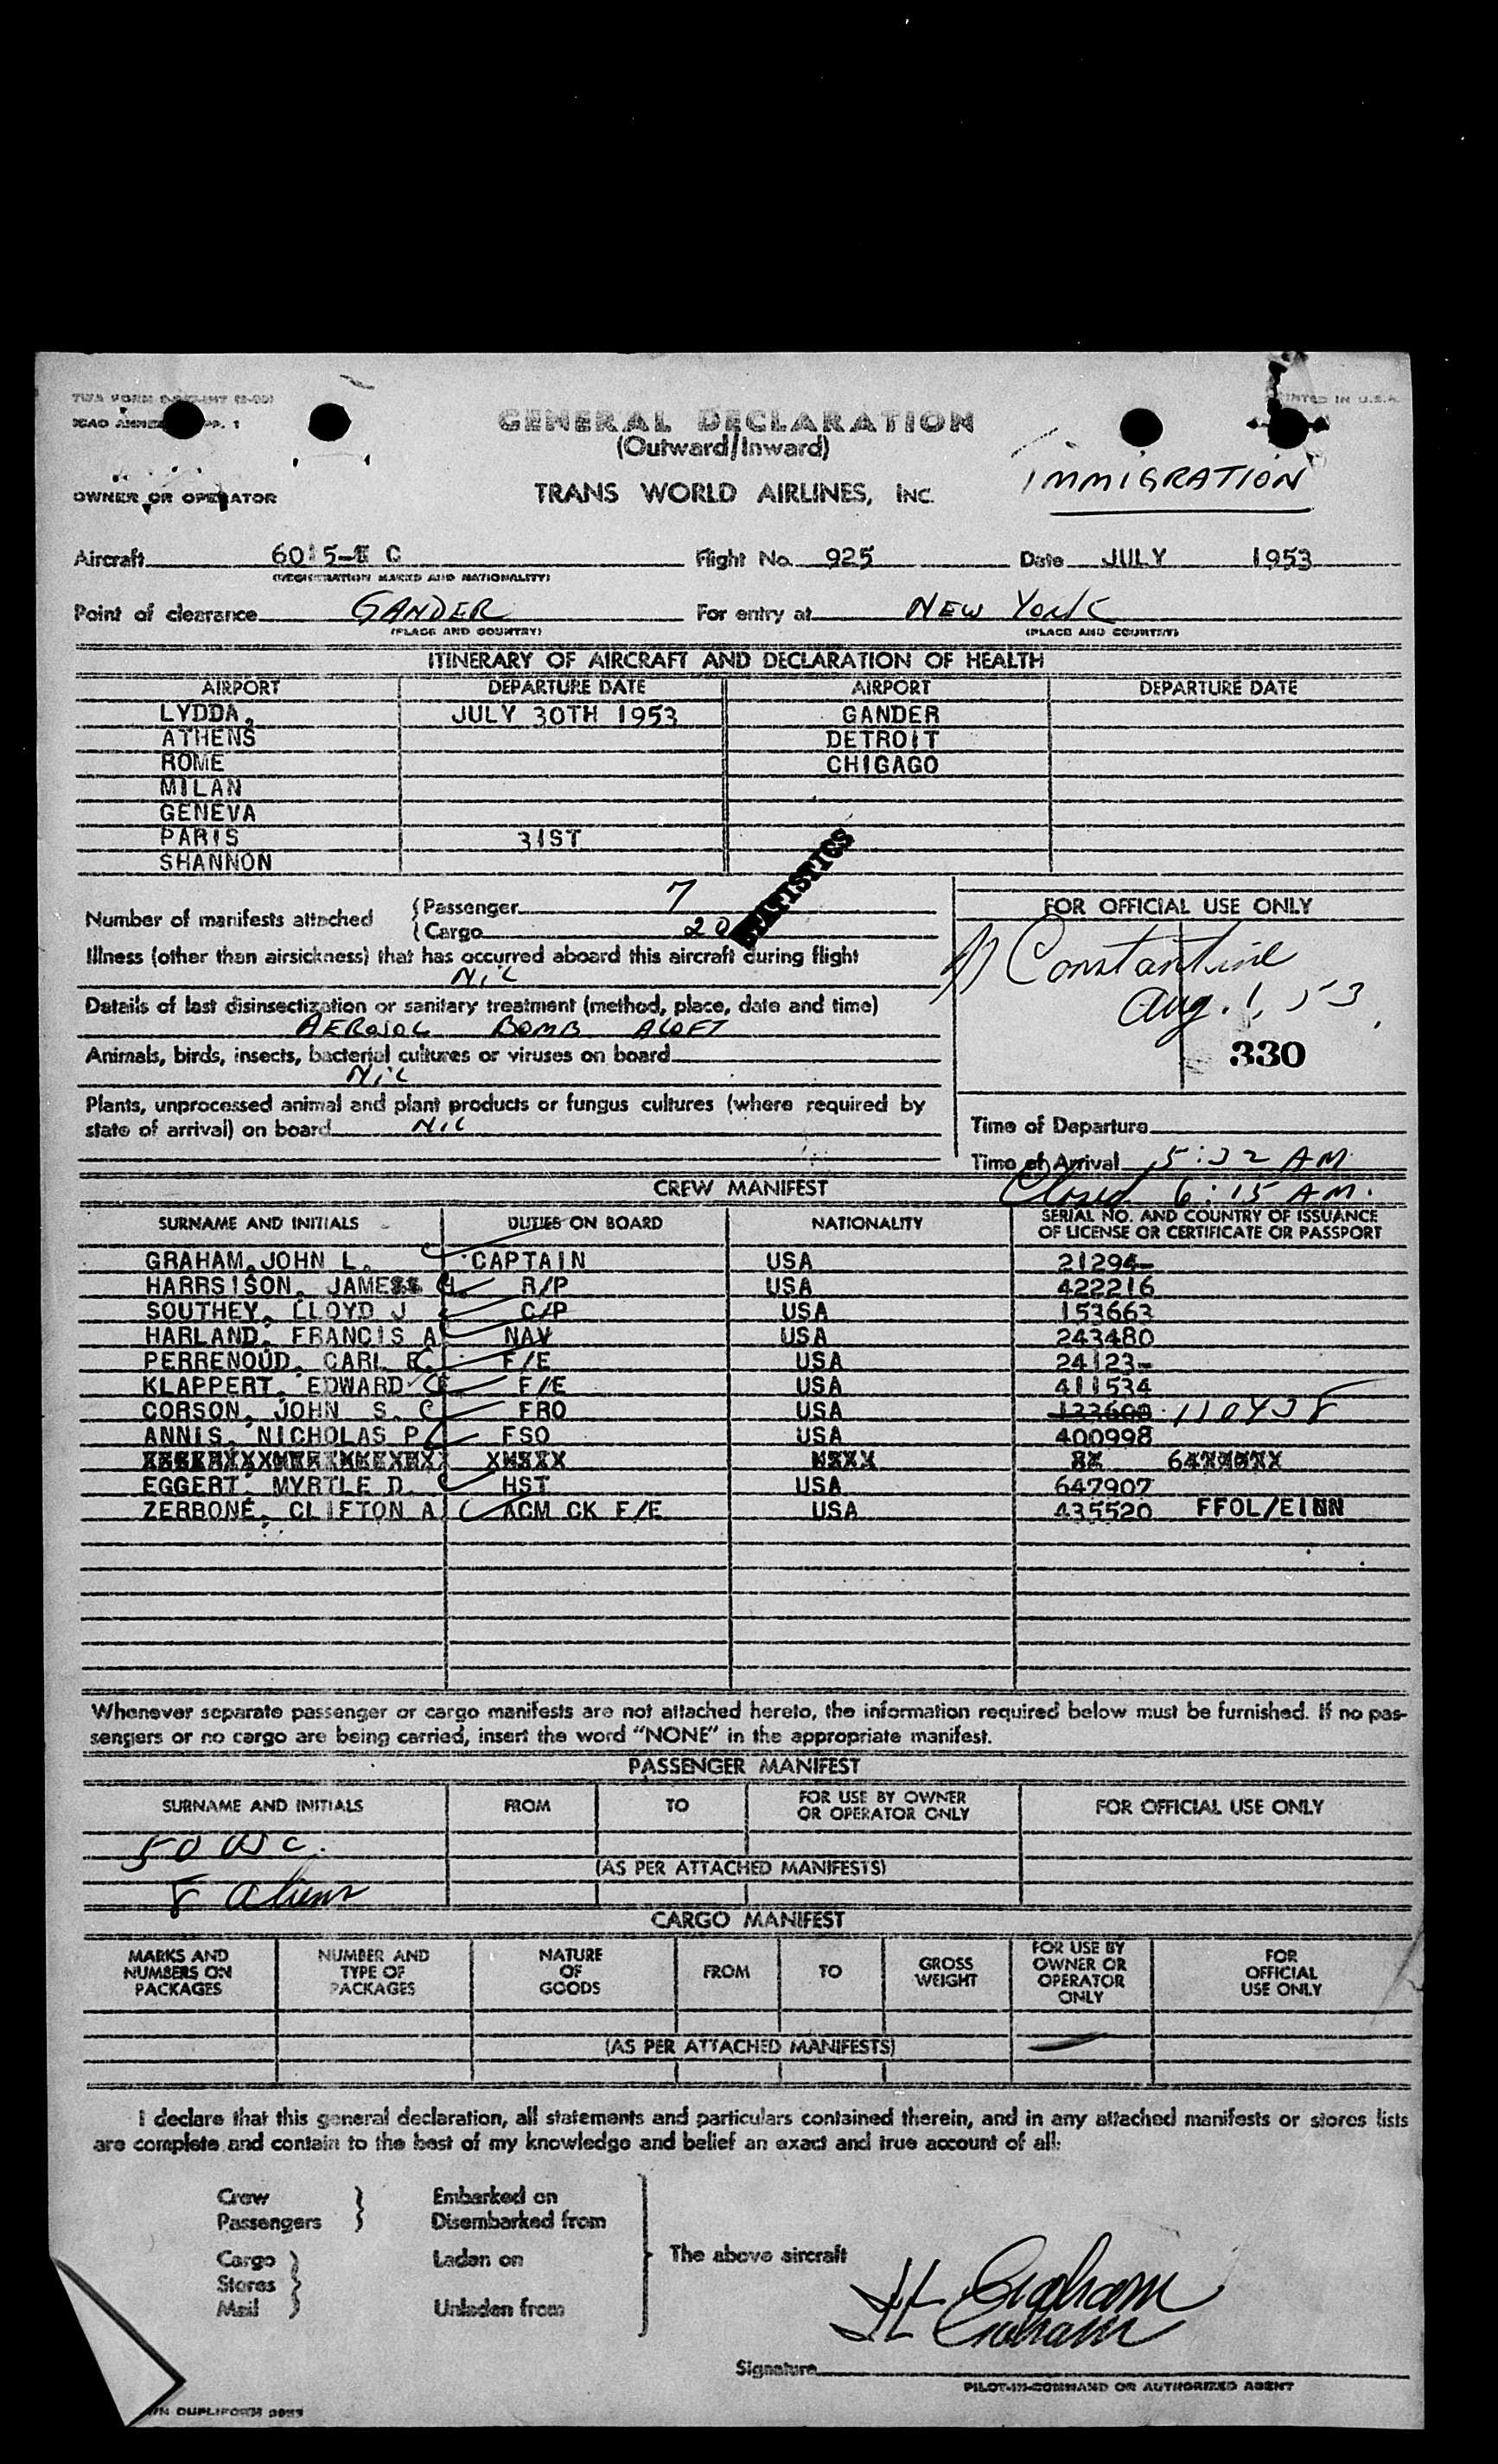 PRINTED IN U.S.A.
GENERAL DECLARATION
(Outward/Inward)
IMMIGRATION
OWNER OR OPERATOR
TRANS WORLD AIRLINES, INC.
Aircraft 6015- C Flight No. 925 Date JULY 1953
(REGISTRATION MARKS AND NATIONALITY)
Point of clearance GANDER For entry at NEW YORK
(PLACE AND COUNTRY) (PLACE AND COUNTRY)
ITINERARY OF AIRCRAFT AND DECLARATION OF HEALTH
AIRPORT DEPARTURE DATE AIRPORT DEPARTURE DATE
LYDDA, JULY 30TH 1953 GANDER
ATHENS DETROIT
ROME CHIGAGO
MILAN
GENEVA
PARIS 31ST
SHANNON
STATISTICS
Number of manifests attached { Passenger 7
{ Cargo 20
FOR OFFICIAL USE ONLY
Illness (other than airsickness) that has occurred aboard this aircraft during flight
NiL
Constantine
Aug. 1, 53
Details of last disinsectization or sanitary treatment (method, place, date and time)
AEROSOL BOMB ALOFT
Animals, birds, insects, bacterial cultures or viruses on board
NiL
330
Plants, unprocessed animal and plant products or fungus cultures (where required by
state of arrival) on board NiL
Time of Departure
Time of Arrival 5:32 AM
Closed 6:15 AM.
CREW MANIFEST
SURNAME AND INITIALS DUTIES ON BOARD NATIONALITY SERIAL NO. AND COUNTRY OF ISSUANCE
OF LICENSE OR CERTIFICATE OR PASSPORT
GRAHAM, JOHN L. CAPTAIN USA 21294-
HARRSISON, JAMES H. R/P USA 422216
SOUTHEY, LLOYD J C/P USA 153663
HARLAND, FRANCIS A NAV USA 243480
PERRENOUD, CARL E. F/E USA 24123-
KLAPPERT, EDWARD F/E USA 411534
CORSON, JOHN S. FRO USA 133600 110438
ANNIS, NICHOLAS P FSO USA 400998
EGGERT, MYRTLE D. HST USA 647907
ZERBONE, CLIFTON A ACM CK F/E USA 435520 FFOL/EINN
Whenever separate passenger or cargo manifests are not attached hereto, the information required below must be furnished. If no pas-
sengers or no cargo are being carried, insert the word "NONE" in the appropriate manifest.
PASSENGER MANIFEST
SURNAME AND INITIALS FROM TO FOR USE BY OWNER
OR OPERATOR ONLY FOR OFFICIAL USE ONLY
50 USC.
(AS PER ATTACHED MANIFESTS)
8 aliens
CARGO MANIFEST
MARKS AND
NUMBERS ON
PACKAGES NUMBER AND
TYPE OF
PACKAGES NATURE
OF
GOODS FROM TO GROSS
WEIGHT FOR USE BY
OWNER OR
OPERATOR
ONLY FOR
OFFICIAL
USE ONLY
(AS PER ATTACHED MANIFESTS)
I declare that this general declaration, all statements and particulars contained therein, and in any attached manifests or stores lists
are complete and contain to the best of my knowledge and belief an exact and true account of all:
Crew } Embarked on
Passengers } Disembarked from
Cargo } Laden on The above aircraft
Stores }
Mail } Unladen from
JL Graham
JL Graham
Signature
PILOT-IN-COMMAND OR AUTHORIZED AGENT